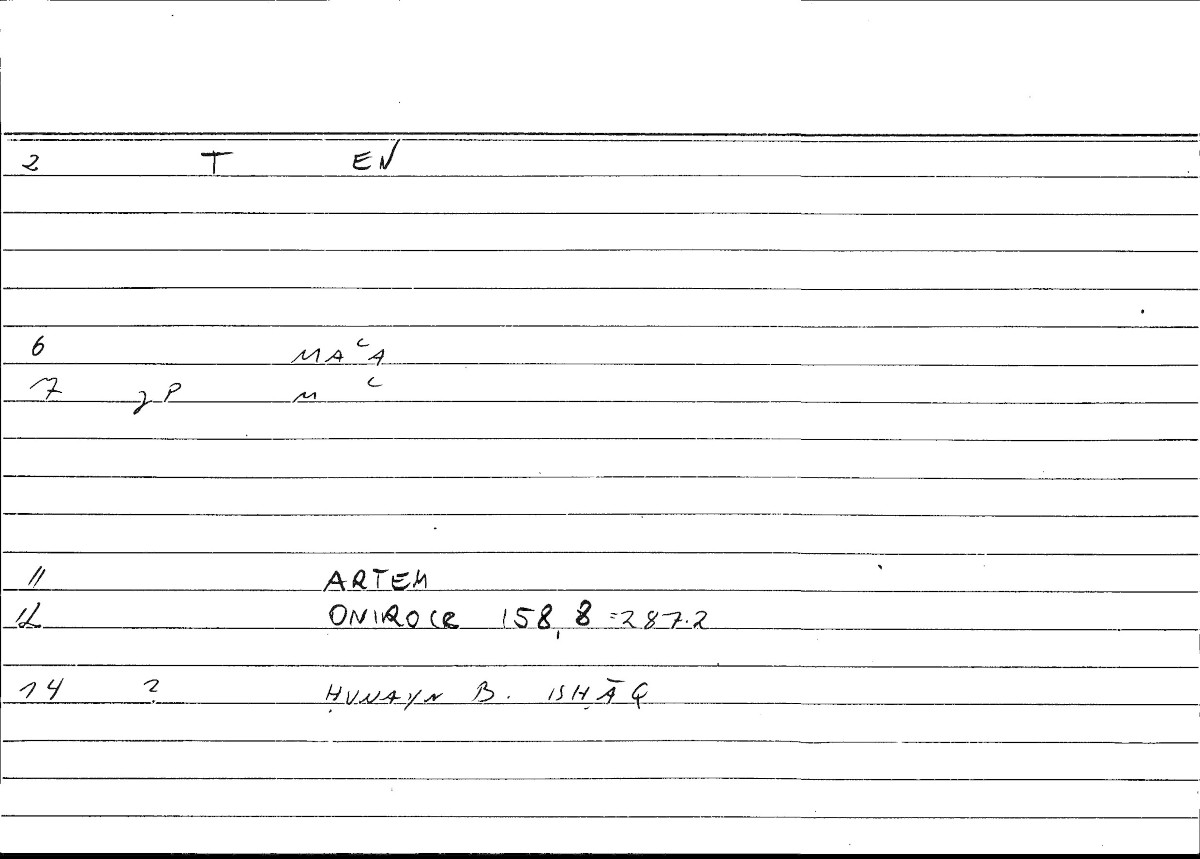 2 T EN
6 MAʿA
7 JP M ʿ
11 ARTEM
12 ONIROCR 158,8=287.2
14 ? ḤUNAYN B. ISḤĀQ